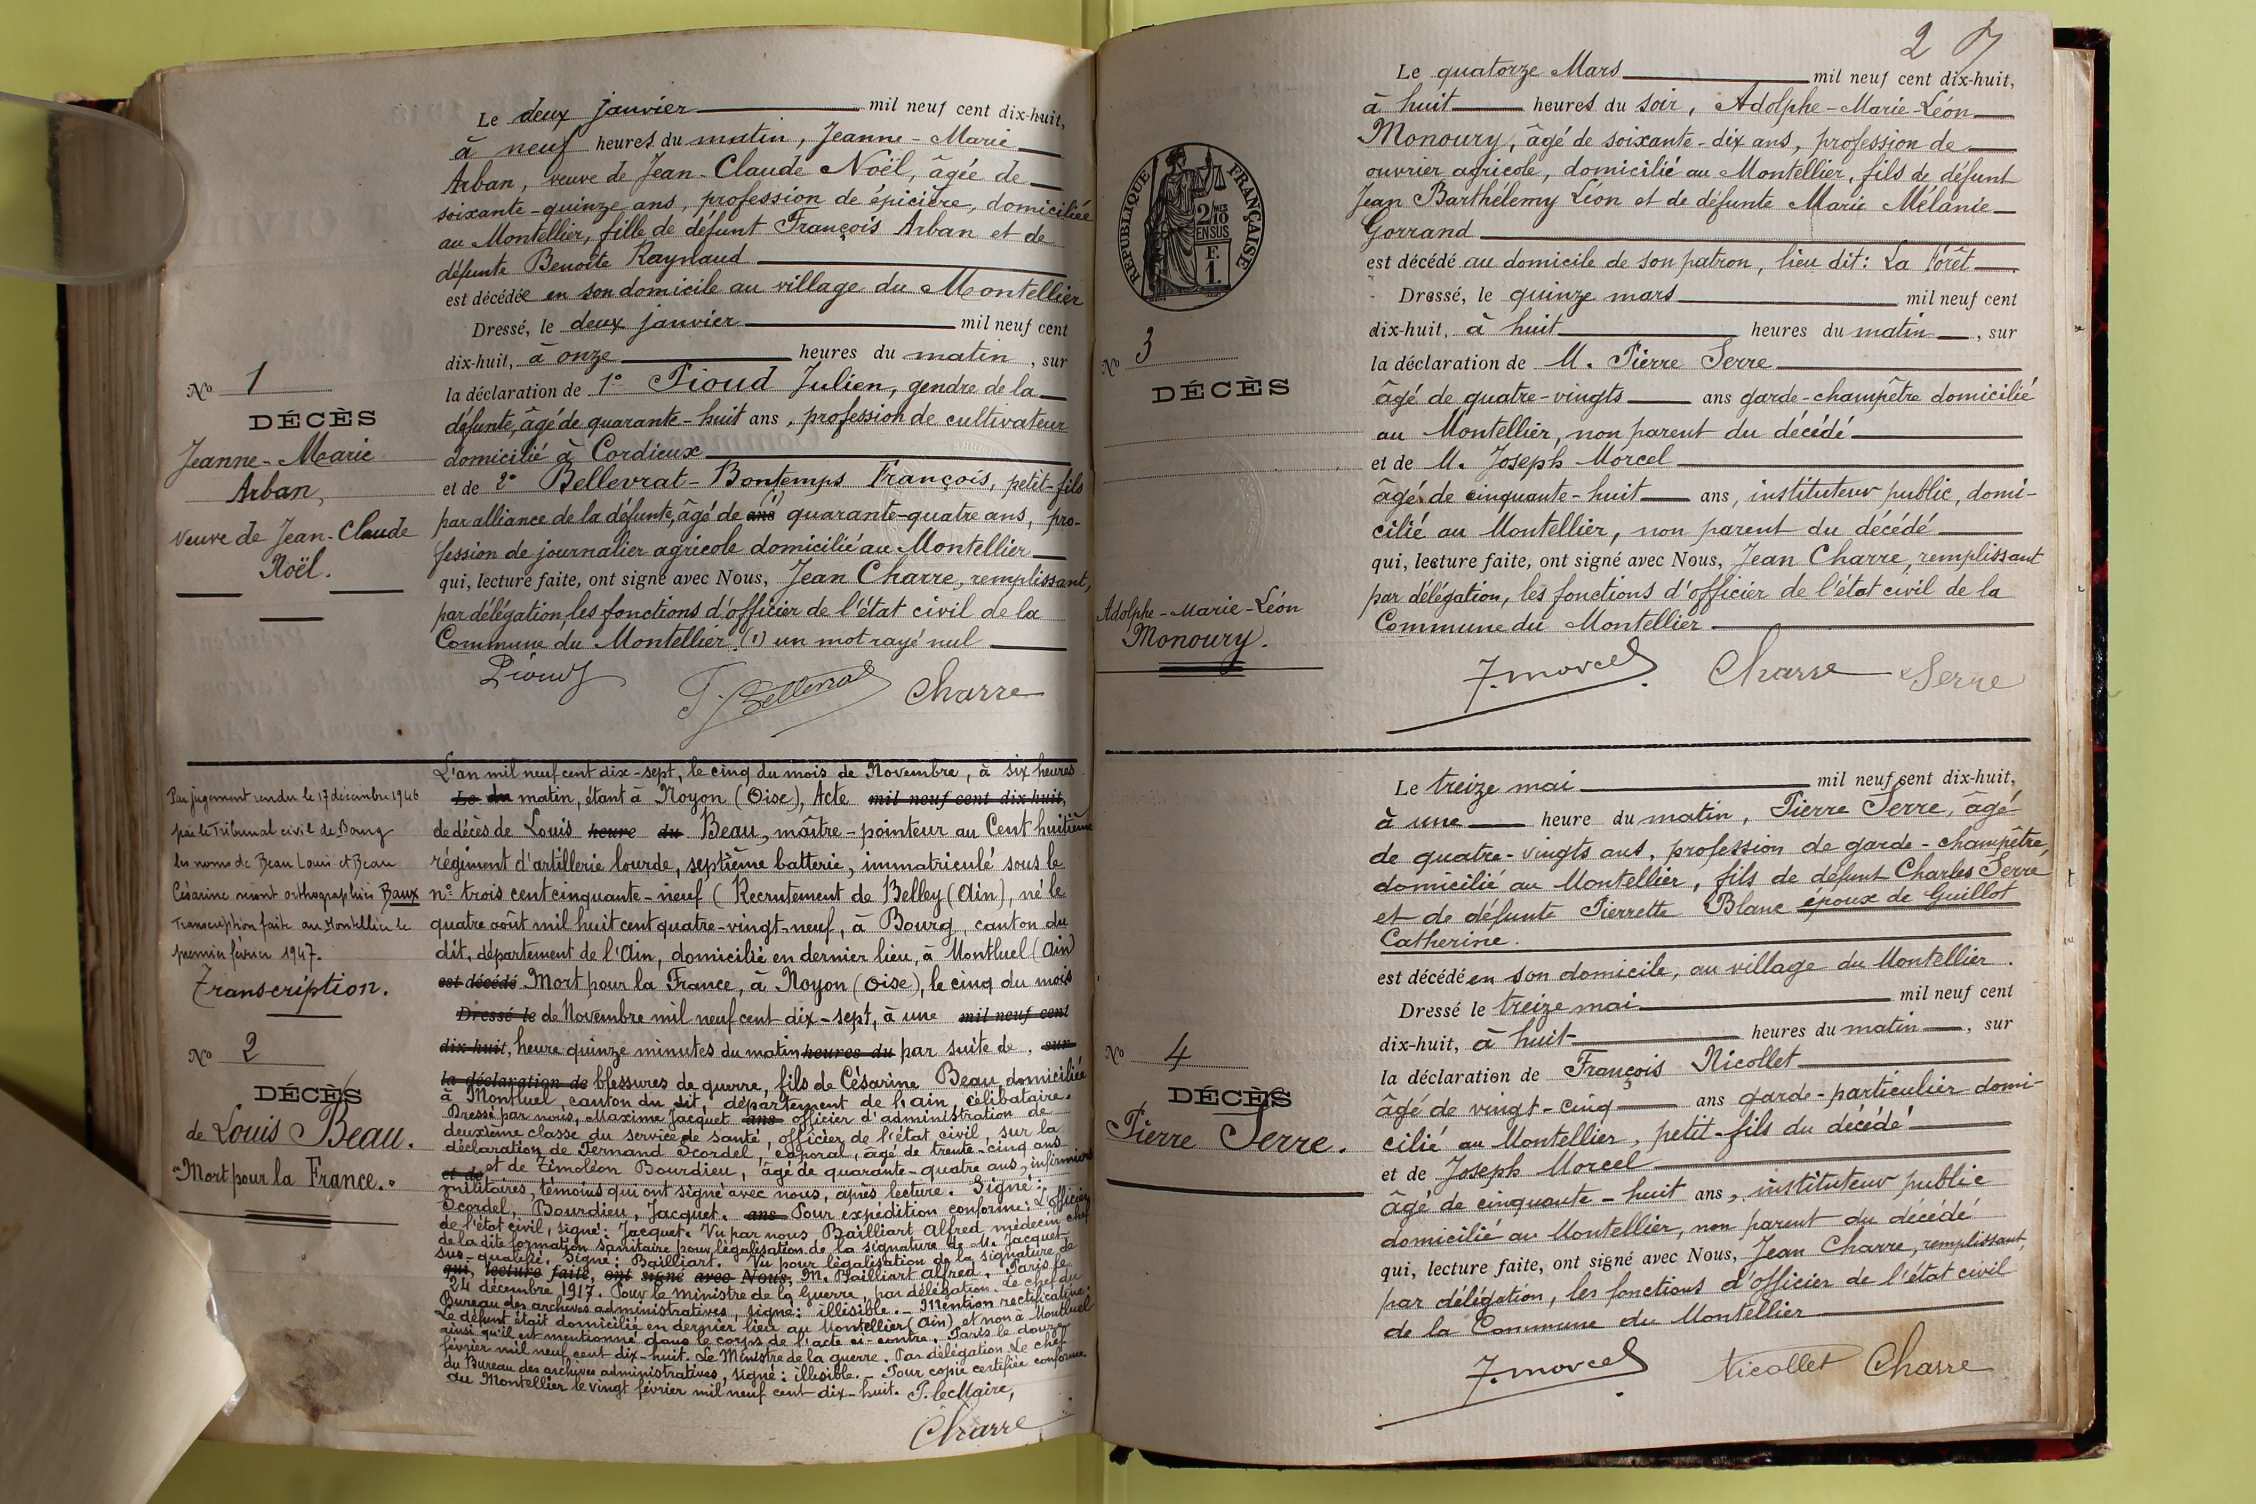 Le deux janvier mil neuf cent dix-huit,
à neuf heures du matin, Jeanne-Marie
Arban, veuve de Jean-Claude Noël, âgée de
soixante-quinze ans, profession de épicière, domiciliée
au Montellier, fille de défunt François Arban et de
défunte Benoîte Raynaud
est décédée en son domicile au village du Montellier
Dressé, le deux janvier mil neuf cent
dix-huit, à onze heures du matin, sur
la déclaration de 1° Pioud Julien, gendre de la
défunte, âgé de quarante-huit ans, profession de cultivateur
domicilié à Cordieux
et de 2° Bellevrat-Bontemps François, petit-fils
par alliance de la défunte, âgé de ans (1) quarante-quatre ans, pro-
fession de journalier agricole domicilié au Montellier
qui, lecture faite, ont signé avec Nous, Jean Charre, remplissant,
par délégation, les fonctions d'officier de l'état civil de la
Commune du Montellier. (1) un mot rayé nul
Pioud
F. Bellevrat
Charre
N° 1
DÉCÈS
Jeanne-Marie
Arban,
veuve de Jean-Claude
Noël.
L'an mil neuf cent dix-sept, le cinq du mois de Novembre, à six heures
Le du matin, étant à Noyon (Oise), Acte mil neuf cent dix-huit,
de décès de Louis heure du Beau, maître-pointeur au Cent huitième
régiment d'artillerie lourde, septième batterie, immatriculé sous le
n° trois cent cinquante-neuf (Recrutement de Belley (Ain), né le
quatre août mil huit cent quatre-vingt-neuf, à Bourg, canton du
dit, département de l'Ain, domicilié en dernier lieu, à Montluel (Ain)
est décédé Mort pour la France, à Noyon (Oise), le cinq du mois
Dressé le de Novembre mil neuf cent dix-sept, à une mil neuf cent
dix-huit, heure quinze minutes du matin heures du par suite de, sur
la déclaration de blessures de guerre, fils de Césarine Beau, domiciliée
à Montluel, canton du dit, département de l'ain, célibataire.
Dressé par nous, Maxime Jacquet ans officier d'administration de
deuxième classe du service de santé, officier de l'état civil, sur la
déclaration de Fernand Scordel, caporal, âgé de trente-cinq ans
et de et de Timoléon Bourdieu, âgé de quarante-quatre ans, infirmiers
militaires, témoins qui ont signé avec nous, après lecture. Signé:
Scordel, Bourdieu, Jacquet. ans Pour expédition conforme: L'officier
de l'état civil, signé: Jacquet. Vu par nous Bailliart Alfred, médecin chef
de la dite formation sanitaire pour légalisation de la signature de M. Jacquet
sus-qualifié. Signé: Bailliart. Vu pour légalisation de la signature de
qui, lecture faite, ont signé avec Nous, M. Bailliart Alfred. Paris le
24 décembre 1917. Pour le ministre de la Guerre, par délégation. Le chef du
Bureau des archives administratives, signé: illisible. - Mention rectificative:
Le défunt était domicilié en dernier lieu au Montellier (Ain) et non à Montluel
ainsi qu'il est mentionné dans le corps de l'acte ci-contre. Paris le douze
février mil neuf cent dix-huit. Le Ministre de la guerre. Par délégation Le chef
du Bureau des archives administratives, signé: illisible. - Pour copie certifiée conforme
au Montellier le vingt février mil neuf cent dix-huit. P. le Maire,
Charre
Par jugement rendu le 17 décembre 1946
par le Tribunal civil de Bourg
les noms de Beau Louis et Beau
Césarine seront orthographiés Baux
Transcription faite au Montellier le
premier février 1947.
Transcription.
N° 2
DÉCÈS
de Louis Beau.
"Mort pour la France."
2
Le quatorze Mars mil neuf cent dix-huit,
à huit heures du soir, Adolphe-Marie-Léon
Monoury, âgé de soixante-dix ans, profession de
ouvrier agricole, domicilié au Montellier, fils de défunt
Jean Barthélemy Léon et de défunte Marie Mélanie
Gorrand
est décédé au domicile de son patron, lieu dit: La Forêt
Dressé, le quinze mars mil neuf cent
dix-huit, à huit heures du matin, sur
la déclaration de M. Pierre Serre
âgé de quatre-vingts ans garde-champêtre domicilié
au Montellier, non parent du décédé
et de M. Joseph Morcel
âgé de cinquante-huit ans, instituteur public, domi-
cilié au Montellier, non parent du décédé
qui, lecture faite, ont signé avec Nous, Jean Charre, remplissant
par délégation, les fonctions d'officier de l'état civil de la
Commune du Montellier
J. Morcel
Charre
Serre
RÉPUBLIQUE FRANÇAISE
2/10 EN SUS
F.
1
N° 3
DÉCÈS
Adolphe-Marie-Léon
Monoury.
Le treize mai mil neuf cent dix-huit,
à une heure du matin, Pierre Serre, âgé
de quatre-vingts ans, profession de garde-champêtre,
domicilié au Montellier, fils de défunt Charles Serre
et de défunte Pierrette Blanc époux de Guillot
Catherine.
est décédé en son domicile, au village du Montellier.
Dressé le treize mai mil neuf cent
dix-huit, à huit heures du matin, sur
la déclaration de François Nicollet
âgé de vingt-cinq ans garde-particulier domi-
cilié au Montellier, petit-fils du décédé
et de Joseph Morcel
âgé de cinquante-huit ans, instituteur public
domicilié au Montellier, non parent du décédé
qui, lecture faite, ont signé avec Nous, Jean Charre, remplissant,
par délégation, les fonctions d'officier de l'état civil
de la Commune du Montellier
J. Morcel
Nicollet
Charre
N° 4
DÉCÈS
Pierre Serre.